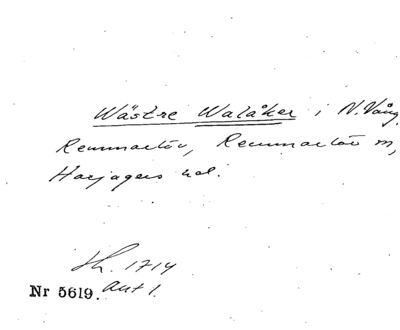 Wästre Walåker i N. Vång
Remmarlöv, Remmarlöv m,
Harjagers hd.
Sh. 1714
Nr 5619. Akt 1.